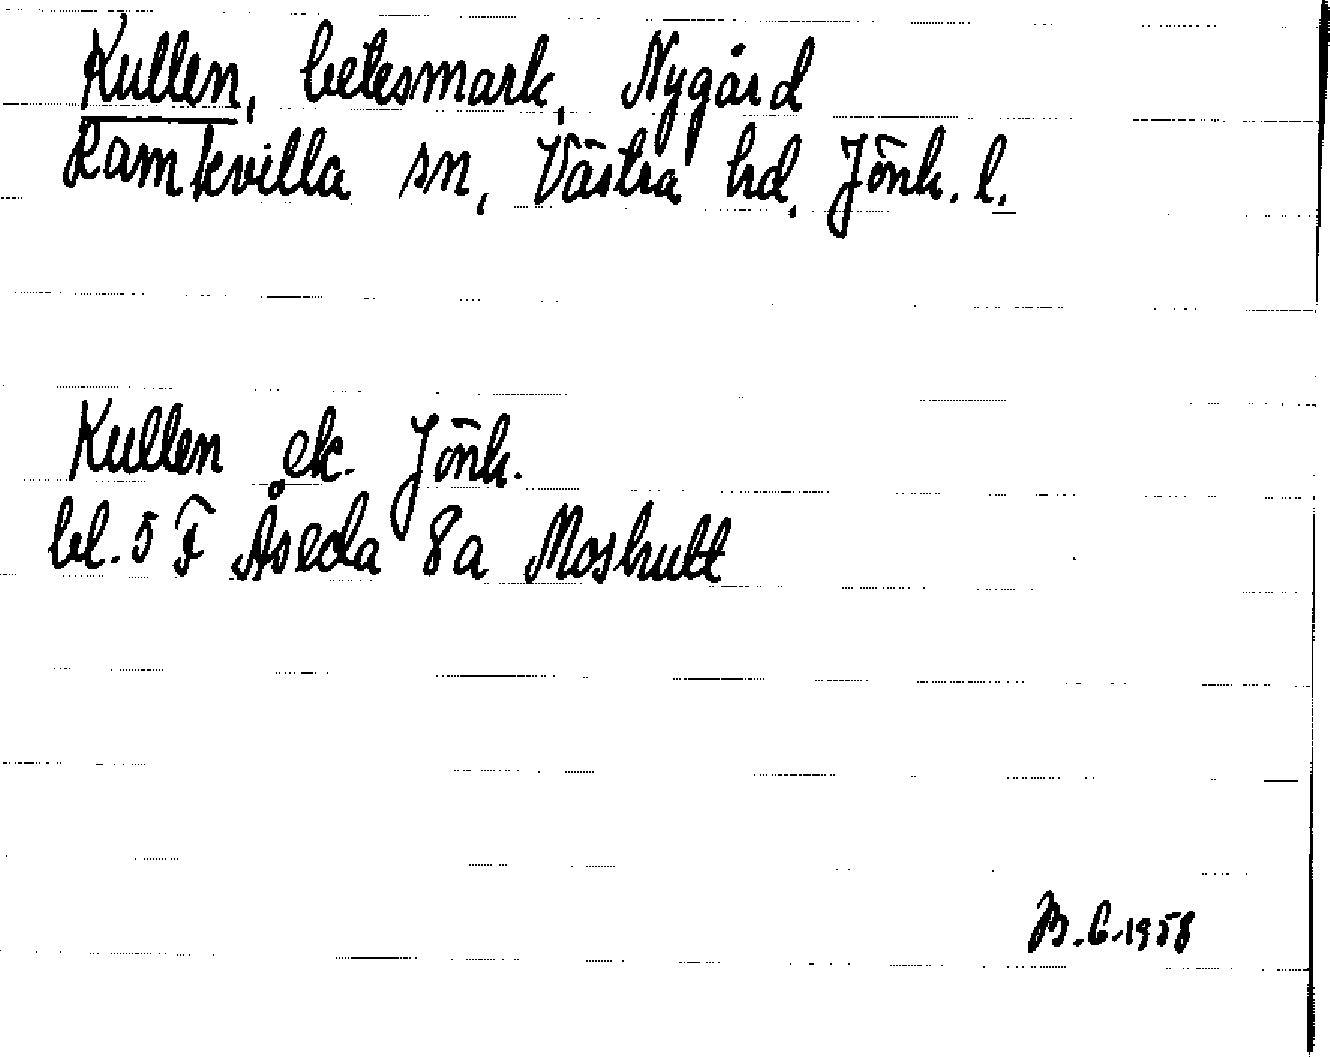 Kullen, betesmark, Nygård
Ramkvilla sn, Västra hd, Jönk. l.
Kullen ek. Jönk.
bl. 5 F Åseda 8a Moshult
B.G.1958